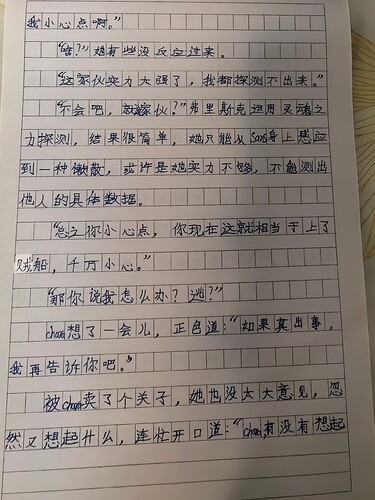 我小心点啊。”
“啥？”她有些没反应过来。
“这家伙实力太强了，我都探测不出来。”
“不会吧，就这家伙？”弗里斯克运用灵魂之
力探测，结果很简单，她只能从Sans身上感应
到一种微散，或许是她实力不够，不能测出
他人的具体数据。
“总之你小心点，你现在这就相当于上了
贼船，千万小心。”
“那你说我怎么办？逃？”
chara想了一会儿，正色道：“如果真出事，
我再告诉你吧。”
被chara卖了个关子，她也没太大意见，忽
然又想起什么，连忙开口道：“chara有没有想起